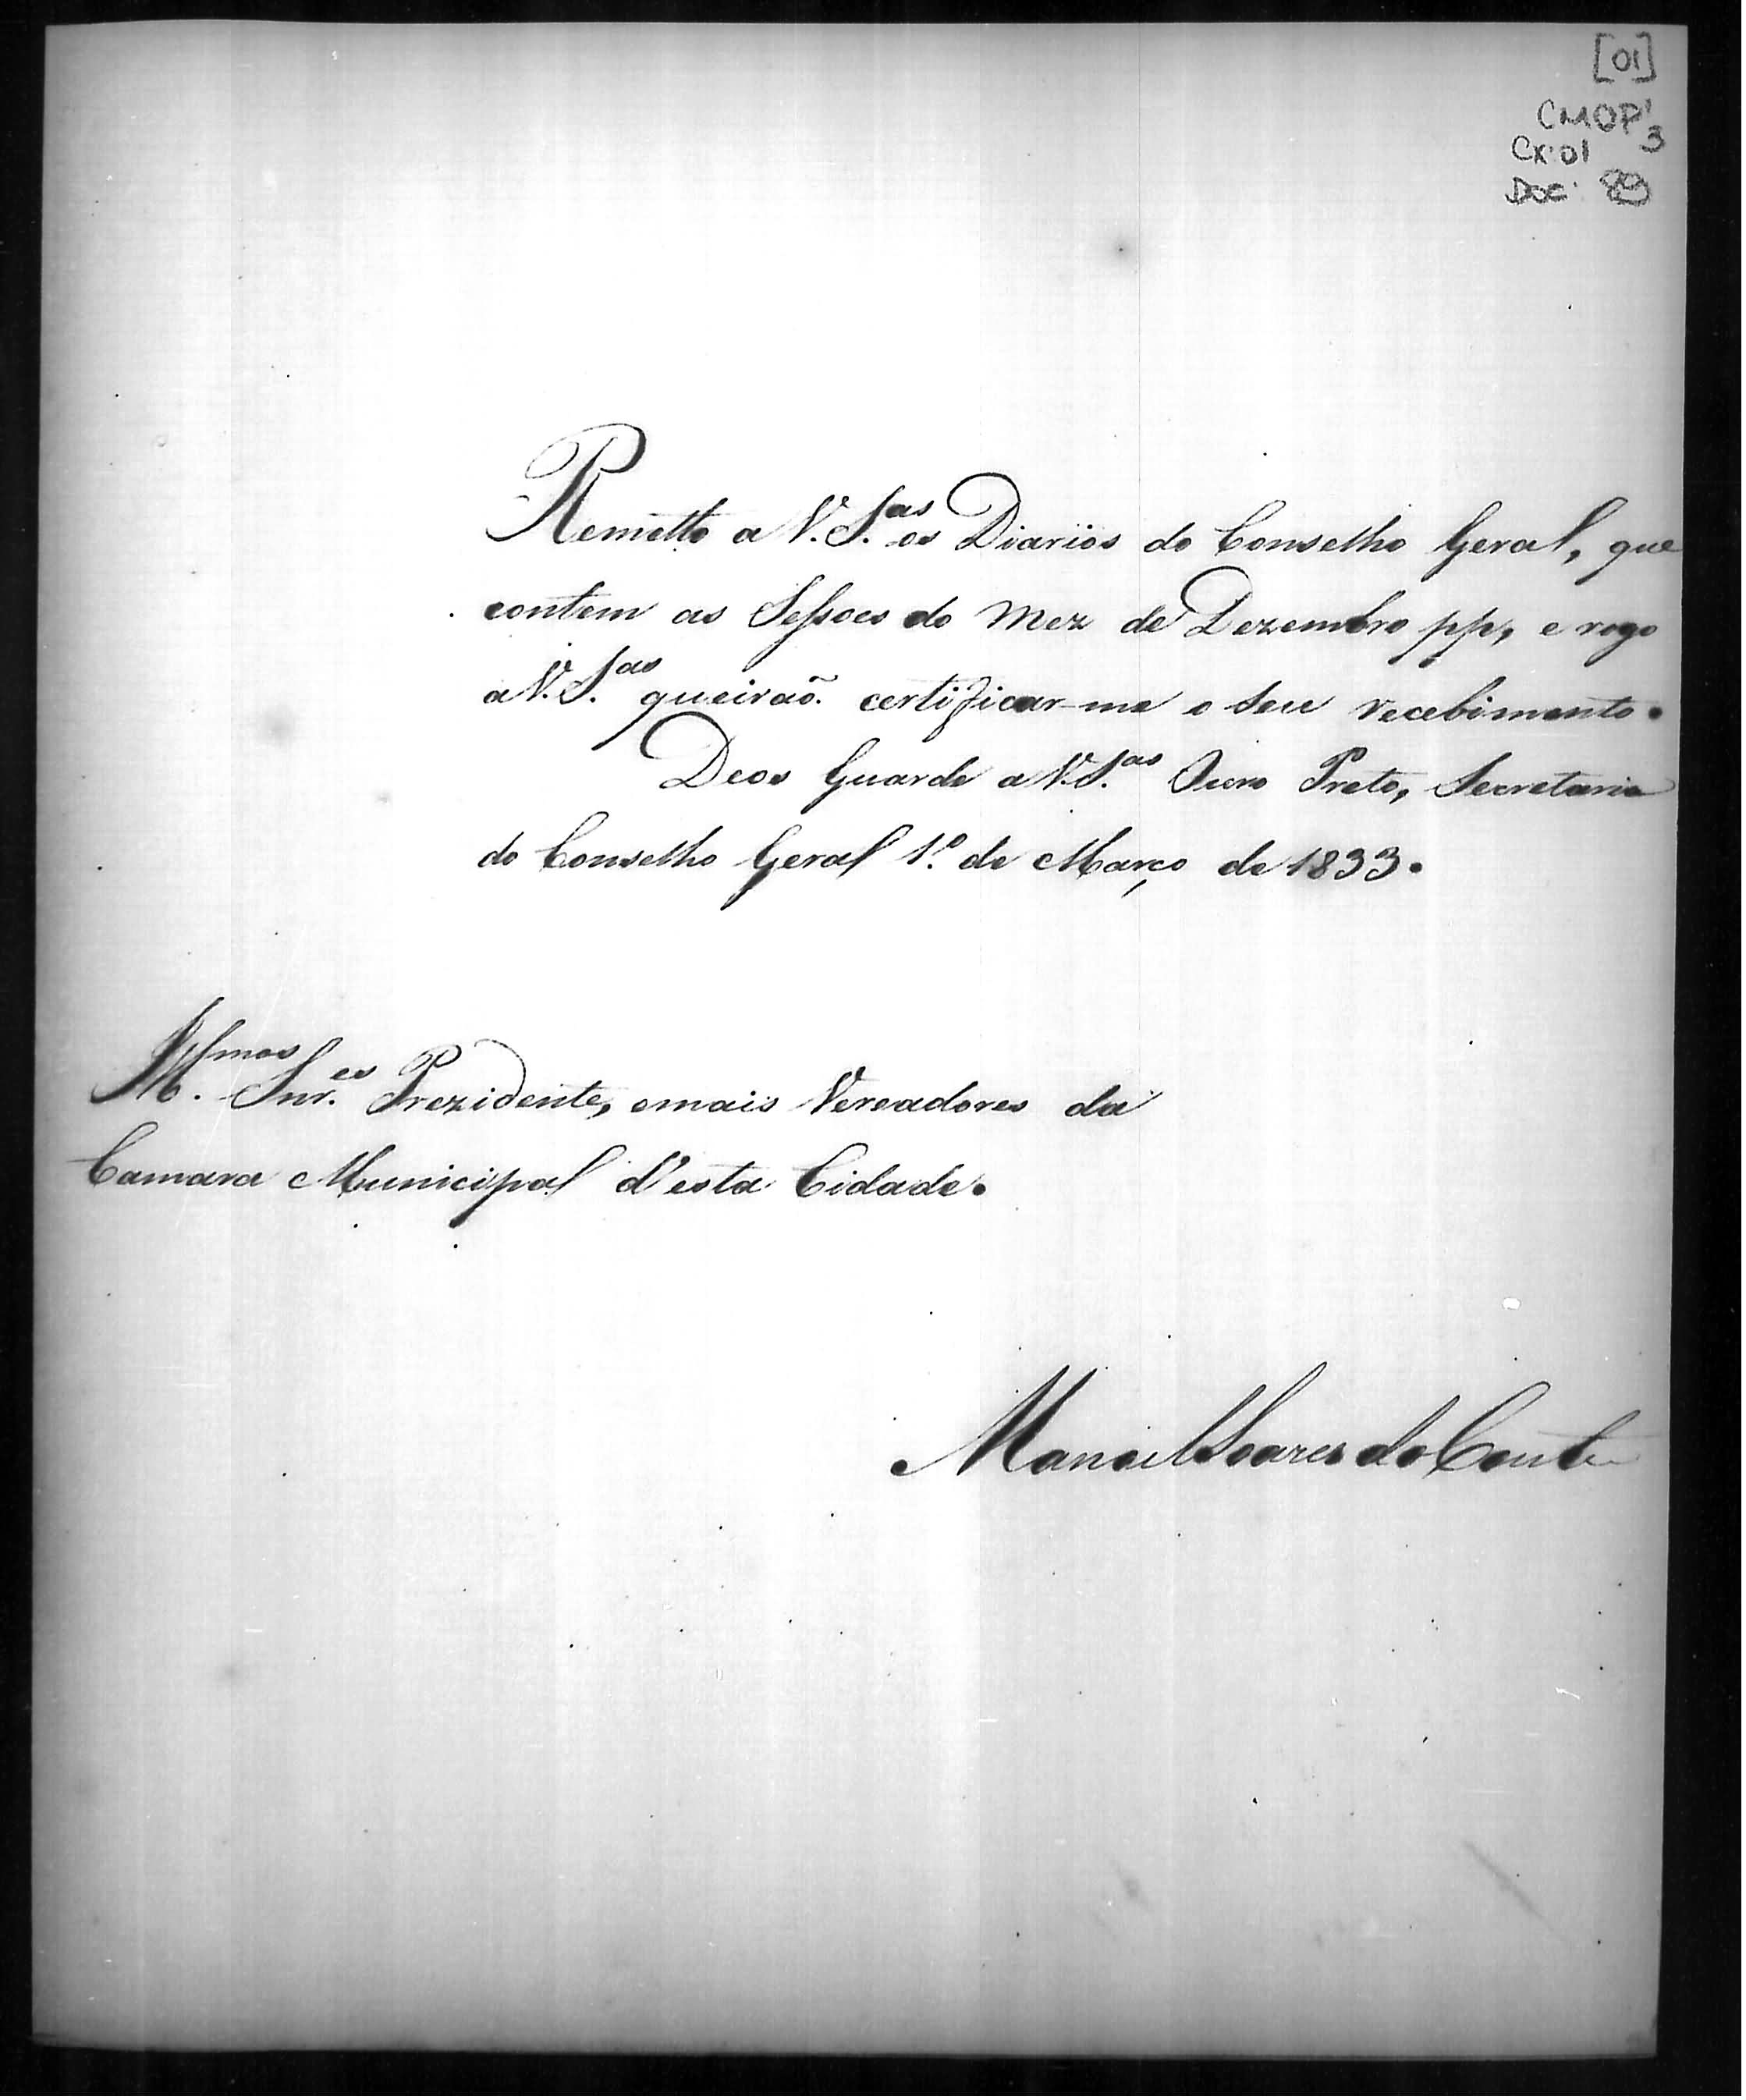 [01]
CMOP 3
Cx: 01
Doc: 89
Remetto a V. S.as os Diarios do Conselho Geral, que
contem as Sessoes do Mez de Dezembro pp, e rogo
a V. S.as queiraõ certificar-me o seu recebimento.
Deos Guarde a V. S.as Ouro Preto, Secretaria
do Conselho Geral 1.º de Março de 1833.
Ill.mos Snr.es Prezidente, e mais Vereadores da
Camara Municipal d'esta Cidade.
Manoel Soares do Couto